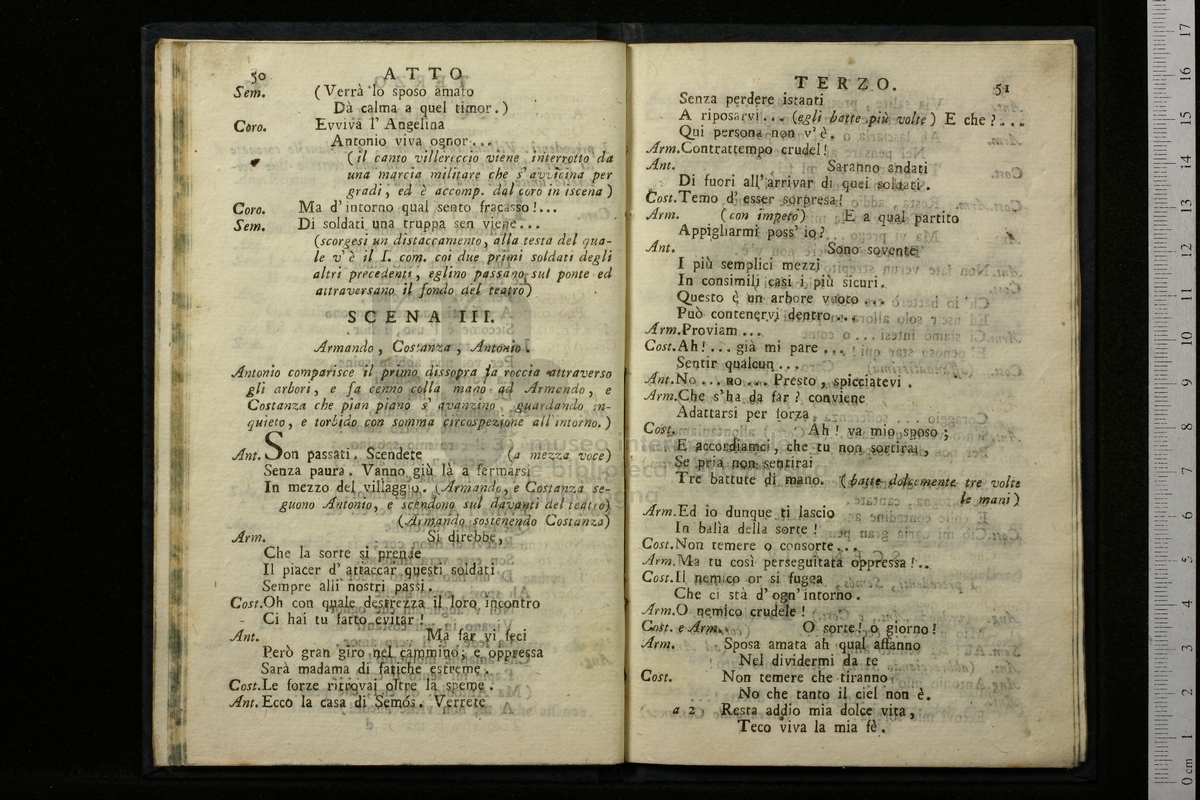 50 ATTO
Sem. (Verrà lo sposo amato
Dà calma a quel timor.)
Coro. Evviva l' Angelina
Antonio viva ognor...
(il canto villereccio viene interrotto da
una marcia militare che s'avvicina per
gradi, ed è accomp. dal coro in iscena)
Coro. Ma d'intorno qual sento fracasso!...
Sem. Di soldati una truppa sen viene...
(scorgesi un distaccamento, alla testa del qua-
le v'è il I. com. coi due primi soldati degli
altri precedenti, eglino passano sul ponte ed
attraversano il fondo del teatro)
SCENA III.
Armando, Costanza, Antonio.
Antonio comparisce il primo dissopra la roccia attraverso
gli arbori, e fa cenno colla mano ad Armando, e
Costanza che pian piano s' avanzino, guardando in-
quieto, e torbido con somma circospezione all'intorno.)
Ant. Son passati. Scendete (a mezza voce)
Senza paura. Vanno giù là a fermarsi
In mezzo del villaggio. (Armando, e Costanza se-
guono Antonio, e scendono sul davanti del teatro)
(Armando sostenendo Costanza)
Arm. Si direbbe,
Che la sorte si prende
Il piacer d' attaccar questi soldati
Sempre alli nostri passi.
Cost. Oh con quale destrezza il loro incontro
Ci hai tu fatto evitar!
Ant. Ma far vi feci
Però gran giro nel cammino; e oppressa
Sarà madama di fatiche estreme.
Cost. Le forze ritrovai oltre la speme.
Ant. Ecco la casa di Semos. Verrete
TERZO. 51
Senza perdere istanti
A riposarvi... (egli batte più volte) E che?...
Qui persona non v'è.
Arm. Contrattempo crudel!
Ant. Saranno andati
Di fuori all'arrivar di quei soldati.
Cost. Temo d' esser sorpresa!
Arm. (con impeto) E a qual partito
Appigliarmi poss' io?
Ant. Sono sovente
I più semplici mezzi
In consimili casi i più sicuri.
Questo è un arbore vuoto...
Può contenervi dentro...
Arm. Proviam...
Cost. Ah!... già mi pare...
Sentir qualcun...
Ant. No... no... Presto, spicciatevi.
Arm. Che s'ha da far? conviene
Adattarsi per forza
Cost. Ah! va mio sposo;
E accordiamci, che tu non sortirai,
Se pria non sentirai
Tre battute di mano. (batte dolcemente tre volte
le mani)
Arm. Ed io dunque ti lascio
In balìa della sorte!
Cost. Non temere o consorte...
Arm. Ma tu così perseguitata oppressa!..
Cost. Il nemico or si fugga
Che ci stà d' ogn' intorno.
Arm. O nemico crudele!
Cost. e Arm. O sorte! o giorno!
Arm. Sposa amata ah qual affanno
Nel dividermi da te
Cost. Non temere che tiranno
No che tanto il ciel non è.
a 2 Resta addio mia dolce vita,
Teco viva la mia fè.